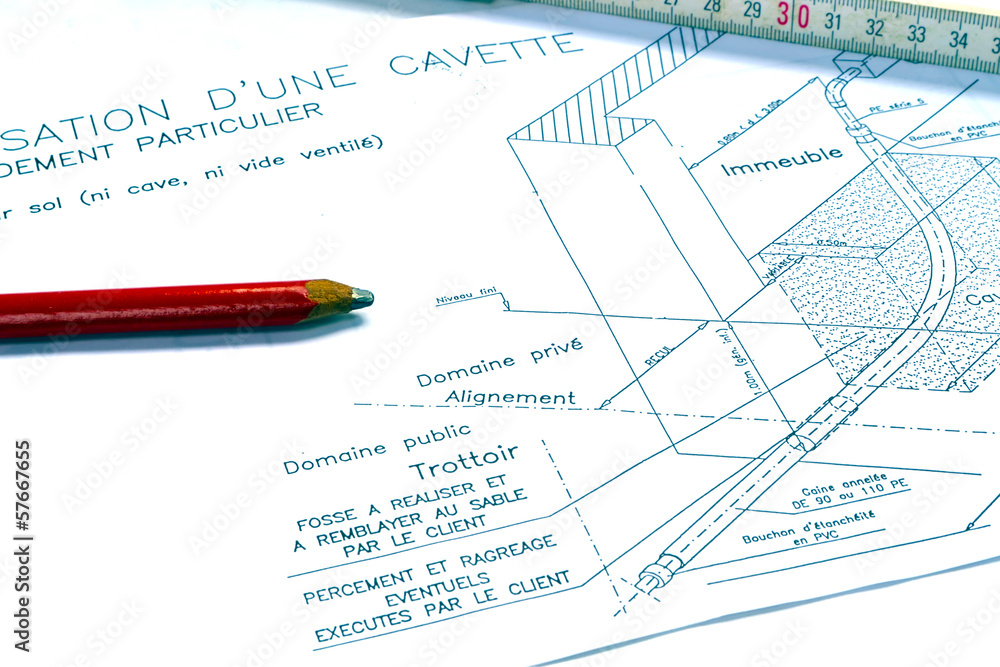 28 29 30 31 32 33 34
SATION D'UNE CAVETTE
DEMENT PARTICULIER
r sol (ni cave, ni vide ventilé)
PE série 5
Bouchon d'étanché
en PVC
0.80m ≤ d ≤ 3.00m
Immeuble
0.50m
Niveau fini
Cav
RECUL
1.00m (gén. ini.)
Domaine privé
Alignement
Domaine public
Trottoir
FOSSE A REALISER ET
A REMBLAYER AU SABLE
PAR LE CLIENT
Gaine annelée
DE 90 ou 110 PE
Bouchon d'étanchéité
en PVC
PERCEMENT ET RAGREAGE
EVENTUELS
EXECUTES PAR LE CLIENT
Adobe Stock | #57667655